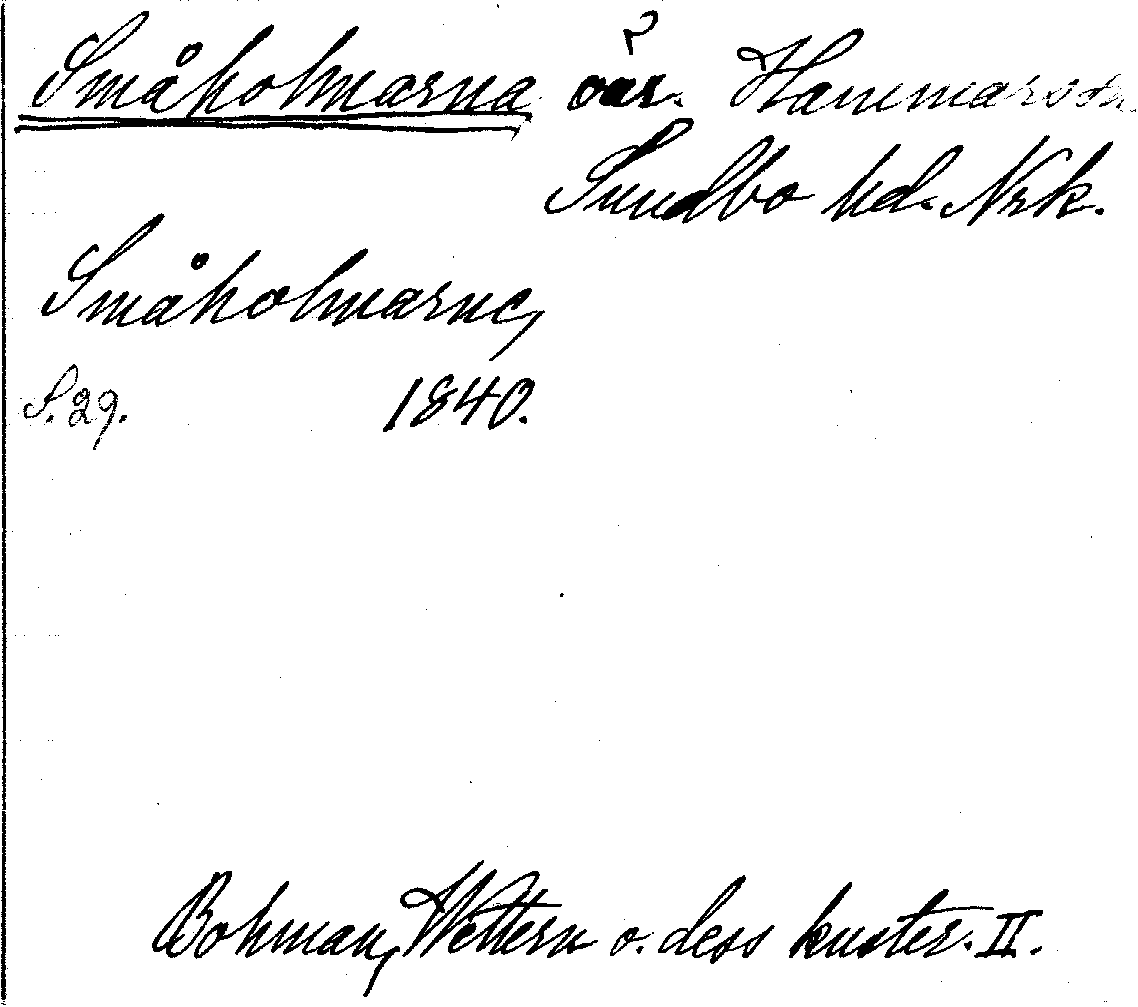 Småholmarna öar. Hammars sn
Sundbo hd. Nrk.
Småholmarne,
S. 29. 1840.
Bohman, Wettern o. dess kuster. II.